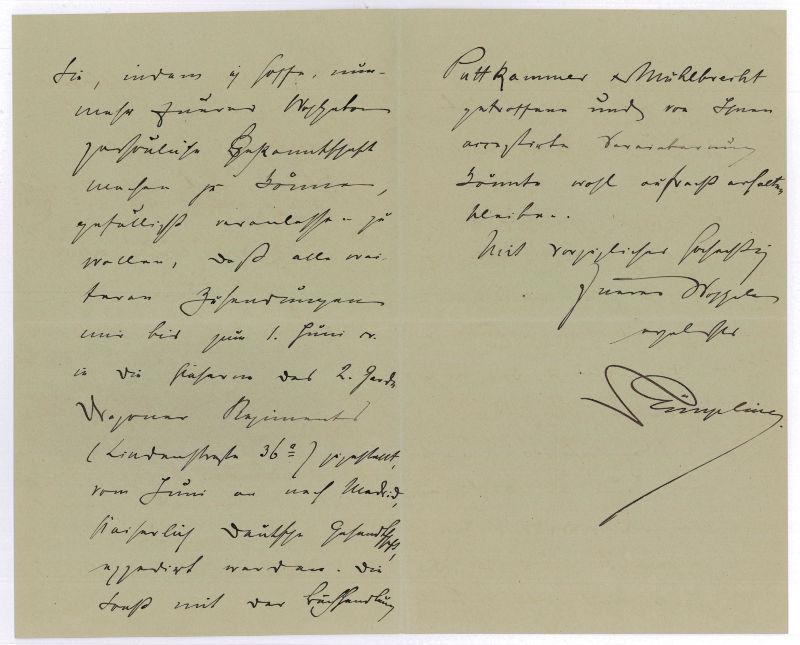 Sie, indem ich hoffe, nun-
mehr Euerer Wohlgeboren
persönliche Bekanntschaft
machen zu können,
gefälligst veranlassen zu
wollen, daß alle wei-
teren Zusendungen
mir bis zum 1. Juni cr.
in die Kaserne des 2. Garde
Dragoner Regiments
(Lindenstraße 36a) zugestellt,
vom Juni an nach Madrid,
Kaiserlich Deutsche Gesandtschaft,
expedirt werden. Die
sonst mit der Buchhandlung
Puttkammer & Mühlbrecht
getroffene und von Ihnen
acceptirte Vereinbarung
könnte wohl aufrecht erhalten
bleiben.
Mit vorzüglicher Hochachtung
Euerer Wohlgeboren
ergebenster